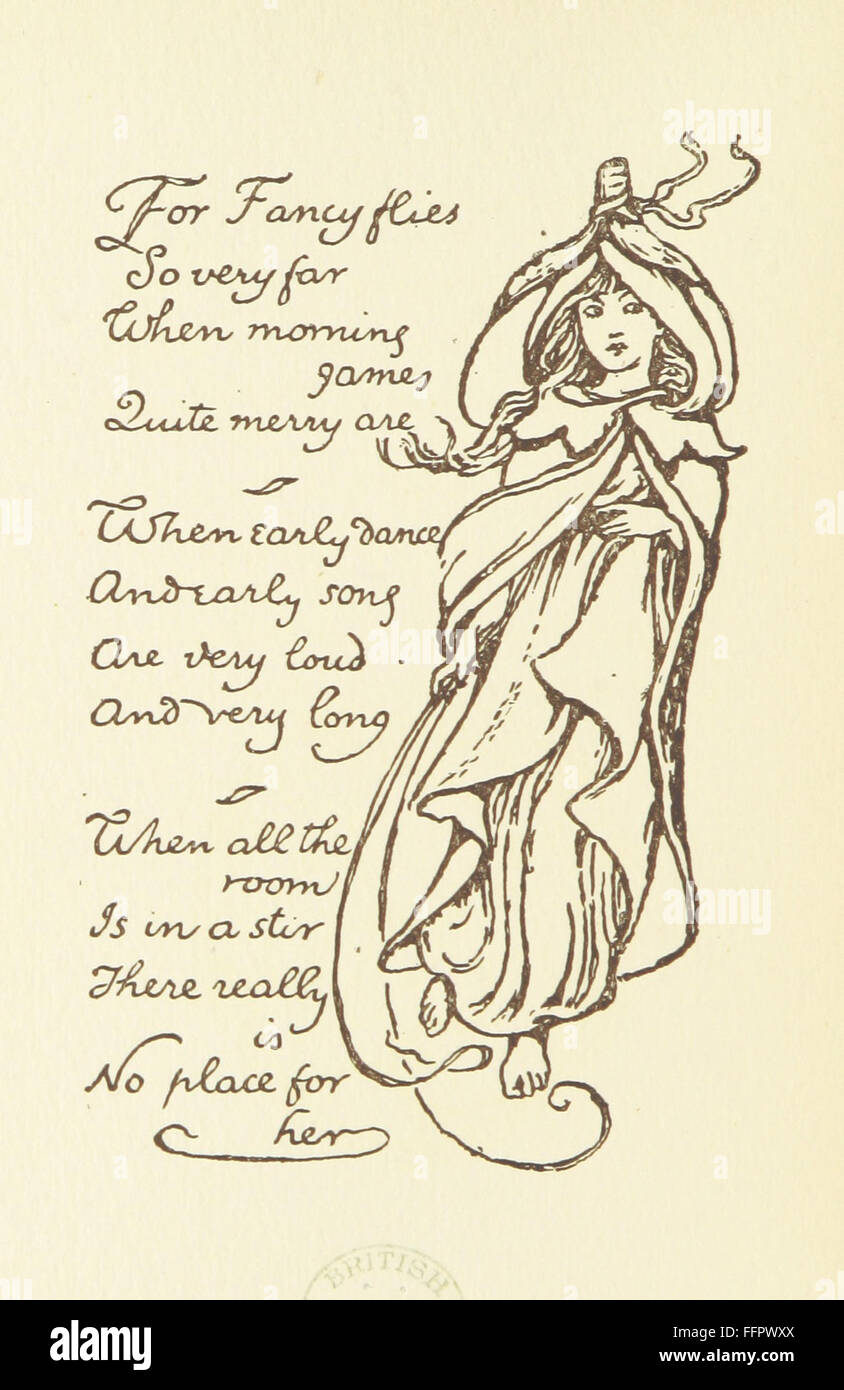 For Fancy flies
So very far
When morning
games
Quite merry are
When early dance
And early song
Are very loud
And very long
When all the
room
Is in a stir
There really
is
No place for
her
BRITISH
a
alamy
alamy stock photo
FFPWXX
www.alamy.com